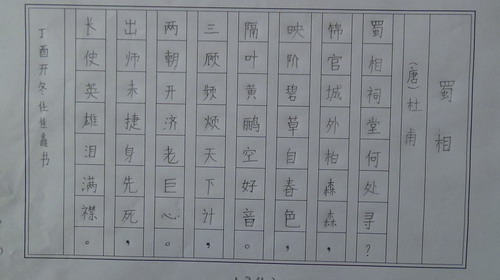 蜀相
(唐)杜甫
蜀相祠堂何处寻?
锦官城外柏森森,
映阶碧草自春色,
隔叶黄鹂空好音。
三顾频烦天下计,
两朝开济老臣心。
出师未捷身先死,
长使英雄泪满襟。
丁酉开冬鑫书